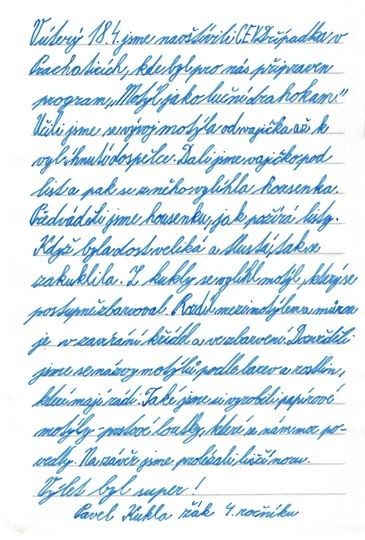 V úterý 18.4. jsme navštívili CEV Dřípatka v
Prachaticích, kde byl pro nás připraven
program „Motýl jako luční drahokam."
Učili jsme se vývoj motýla od vajíčka až k
vylíhnutí dospělce. Dali jsme vajíčko pod
list a pak se z něho vylíhla housenka.
Předváděli jsme housenku, jak požírá listy.
Když byla dost veliká a tlustá, tak se
zakuklila. Z kukly se vylíhl motýl, který se
postupně zbarvoval. Rozdíl mezi motýlem a můrou
je v zavírání křídel a ve zbarvení. Dozvěděli
jsme se názvy motýlů podle barev a rostlin,
které mají rádi. Také jsme si vyrobili papírové
motýly - prstové loutky, které se nám moc po-
vedly. Na závěr jsme prolézali liščí noru.
Výlet byl super!
Pavel Kukla žák 4. ročníku